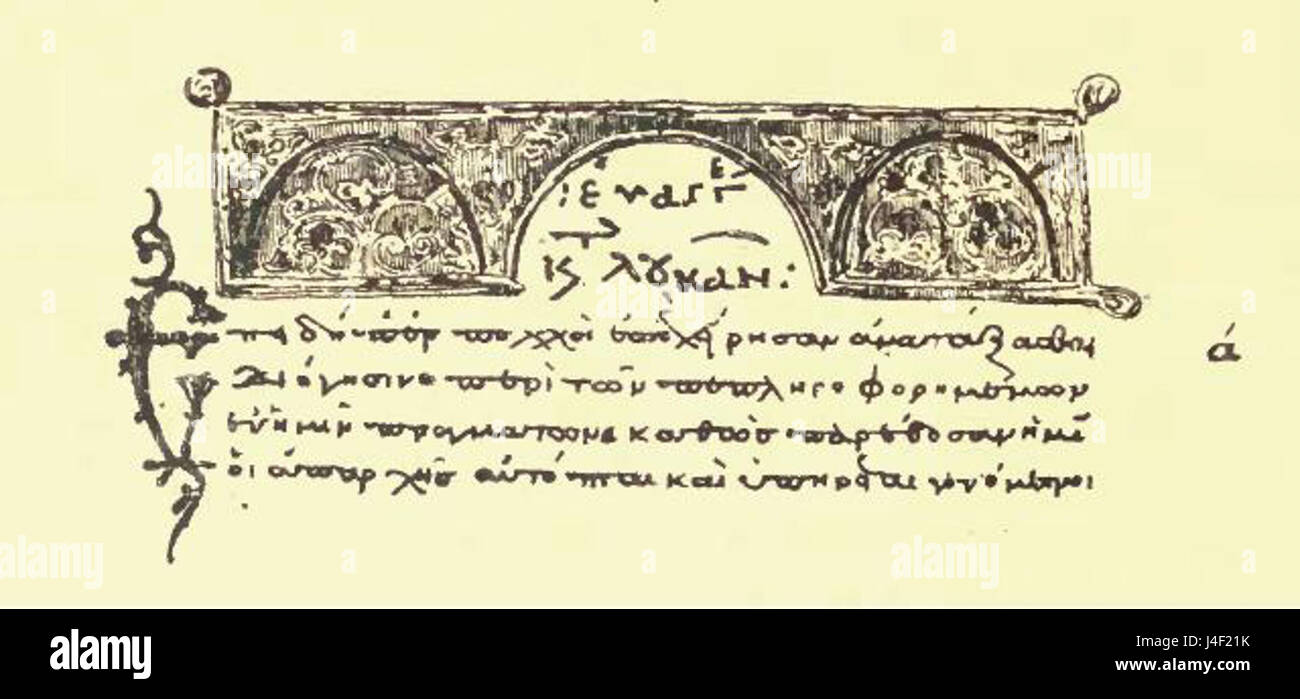 : ἐυαγγε
κ λουκαν :
Ἐπηδήπερ πολλοὶ ἐπεχήρησαν ἀναταξασθαι ά
διήγησιν περὶ τῶν πεπληροφορημένων
ἐν ἡμῖν πραγματων καθὼς παρέδοσαν ἡμῖ
ὁι ἀπαρχῆς αὐτόπται καὶ ὑπηρέται γενόμενοι
alamy
alamy
alamy
alamy
alamy
Image ID: J4F21K
www.alamy.com